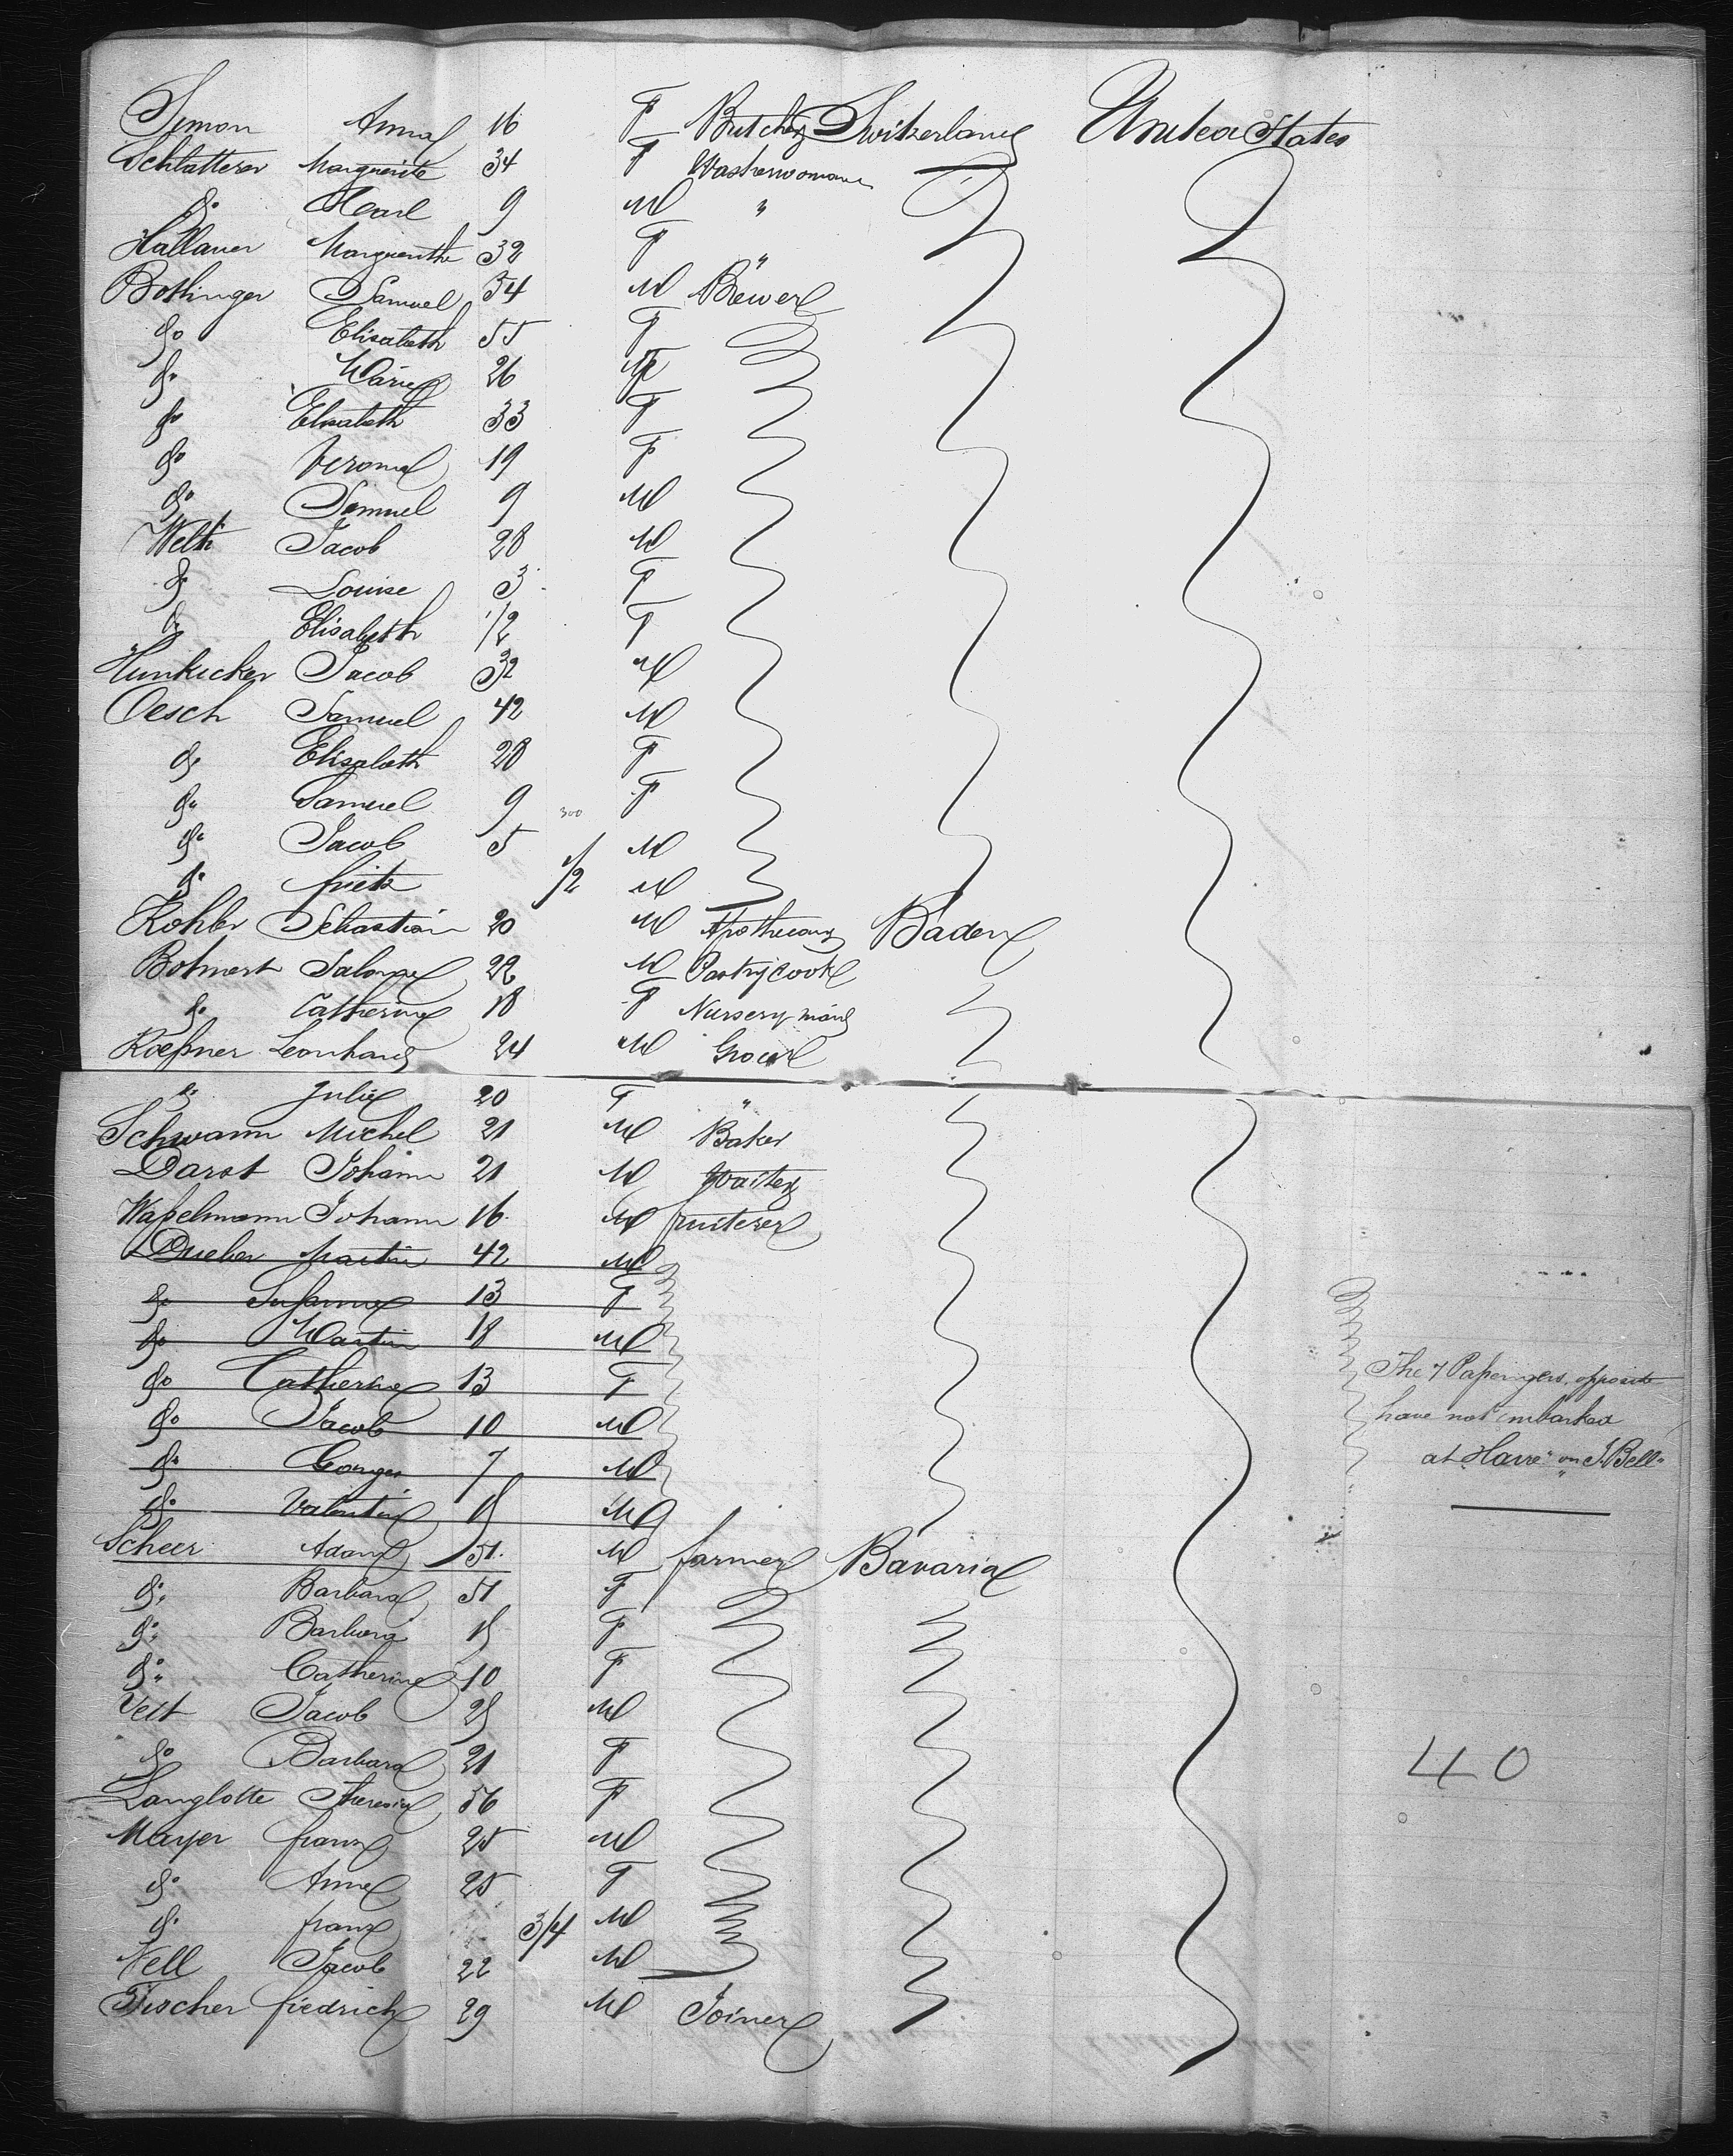 Simon Anna 16 F Butcher Switzerland United States
Schlatterer Marguerite 34 F Washerwoman
do Carl 9 M "
Hallauer Marguerithe 32 F "
Bollinger Samuel 54 M Brewer
do Elisabeth 55 F
do Marie 26 F
do Elisabeth 33 F
do Verona 19 F
do Samuel 9 M
Welti Jacob 28 M
do Louise 3 F
do Elisabeth 1/2 F
Hunkicker Jacob 32 M
Oesch Samuel 42 M
do Elisabeth 28 F
do Samuel 9 300 F
do Jacob 5 M
do fritz 1/2 M
Kohler Sebastian 20 M Apothecary Baden
Botmert Salome 22 M Pastrycook
do Catherine 18 F Nursery maid
Koeßner Leonhard 24 M Grocer
do Julie 20 F "
Schwann Michel 21 M Baker
Darst Johann 21 M Waiter
Waßelmann Johann 16 M fruiterer
Drueber Martin 42 M
do Susanne 13 F
do Martin 18 M
do Catherine 13 F
do Jacob 10 M
do Georges 7 M
do Valentin M
The 7 Paßengers opposite
have not embarked
at Havre on J. Bell
Scheer Adam 51 M farmer Bavaria
do Barbara 51 F
do Barbara F
do Catherine 10 F
Veit Jacob M
do Barbara 21 F
40
Langlotte Theresia 56 F
Mayer franz 25 M
do Anna 25 F
do franz 3/4 M
Nell Jacob 22 M
Fischer friedrich 29 M Joiner